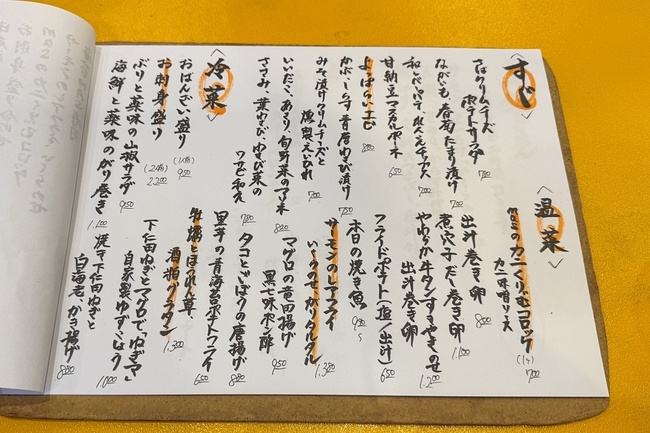 すぐ
さばクリームチーズ
ポテトサラダ
780
ながいも 春菊 たまり漬け
700
700
甘納豆マスカルポーネ
650
よっぱらいエビ
880
かぶ・しらす 昔唐わさび漬け
750
みそ漬けクリームチーズと
燻製えいひれ
700
いいだこ、あさり、旬野菜のマリネ
820
ささみ、葉わさび、ゆず菜の
ワサビ和え
780
冷菜
おばんざい盛り
(1人前) 950
お刺身盛り
(2人前) 2,200
ぶりと薬味の山椒サラダ
950
海鮮と薬味のがり巻き
1,100
温菜
masaのカニくりぃむコロッケ
カニ味噌ソース
(1ヶ) 700
出汁巻き卵
800
煮穴子だし巻き卵
1,100
やわらか牛タンすきやきのせ
出汁巻き卵
1,200
フライドポテト(塩/出汁)
650
本日の焼き魚
980~
サーモンのレアフライ
いくらのせ、がりタルタル
1,380
マグロの竜田揚げ
黒七味ポン酢
950
タコとごぼうの唐揚げ
880
里芋の青海苔ポテトフライ
650
牡蠣とほうれん草
酒粕グラタン
1,300
下仁田ねぎとマグロで「ねぎマ」
自家製ゆずこしょう
1,000
焼き下仁田ねぎと
白海老、かき揚げ
880